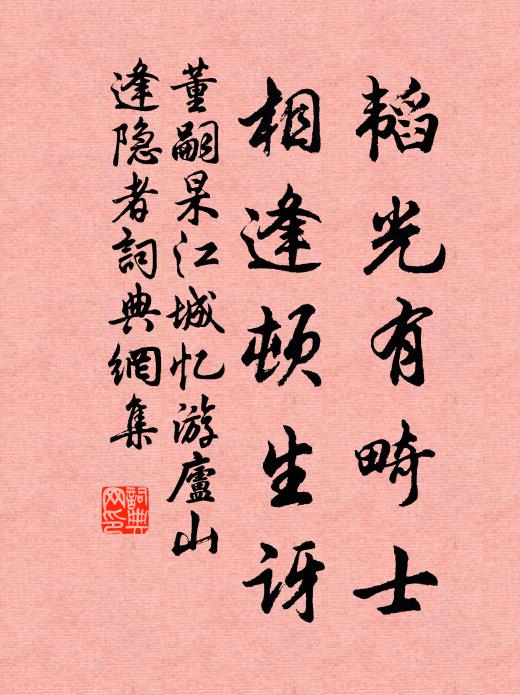 韬光有畸士
相逢顿生讶
董嗣杲江城忆游廬山
逢隐者詞典網集
詞典
网印